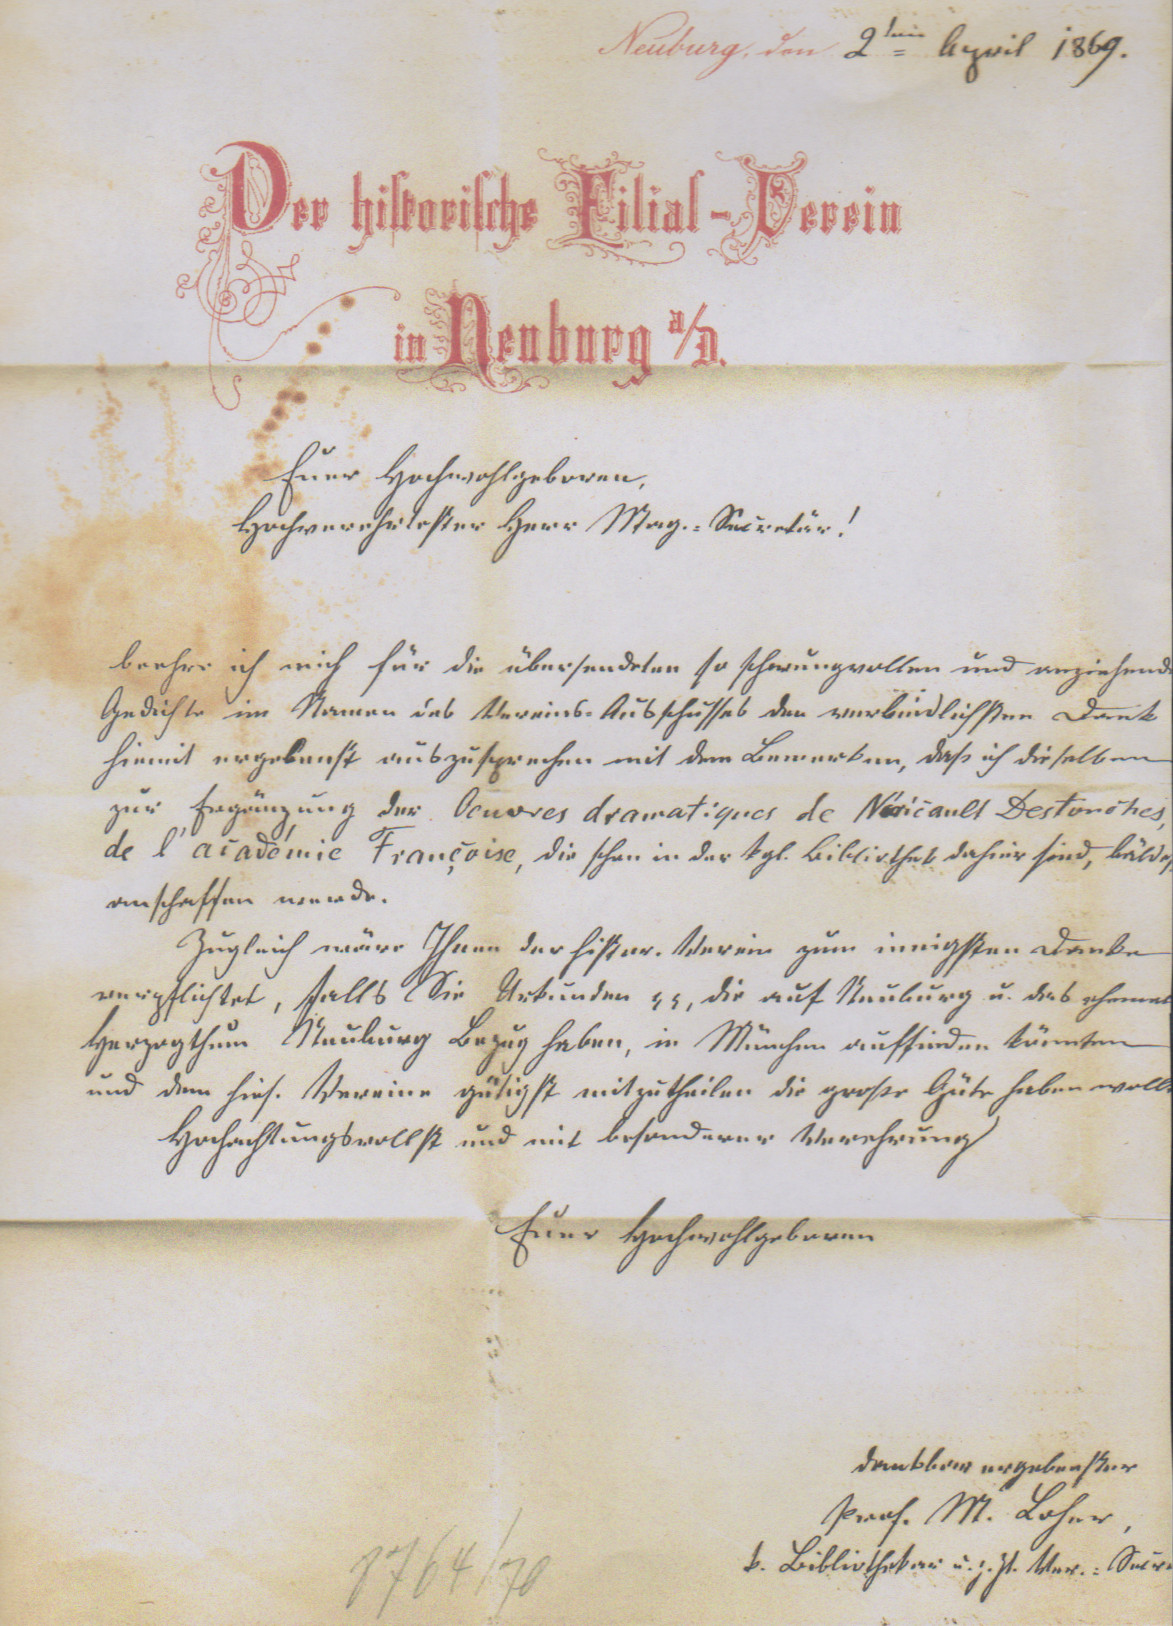 Neuburg, den 2ten April 1869.
Der historische Filial-Verein
in Neuburg a/D.
Euer Hochwohlgeboren,
Hochverehrtester Herr Mag.-Secretär!
beehre ich mich für die übersendeten so schwungvollen und anziehend
Gedichte im Namen des Vereins-Ausschusses den verbindlichsten Dank
hiemit ergebenst auszusprechen mit dem Bemerken, daß ich dieselben
zur Ergänzung der Oeuvres dramatiques de Néricault Destouches,
de l'académie Françoise, die schon in der kgl. Bibliothek dahier sind,
anschaffen werde.
Zugleich wäre Ihnen der histor. Verein zum innigsten Danke
verpflichtet, falls Sie Urkunden, die auf Neuburg u. das ehemal
Herzogthum Neuburg Bezug haben, in München auffinden könnten
und dem hies. Vereine gütigst mitzutheilen die große Güte haben woll
Hochachtungsvollst und mit besonderer Verehrung
Euer Hochwohlgeboren
dankbar ergebenster
Prof. M. Loher,
k. Bibliothekar u. z. Zt. Ver.-Secr
1764/70